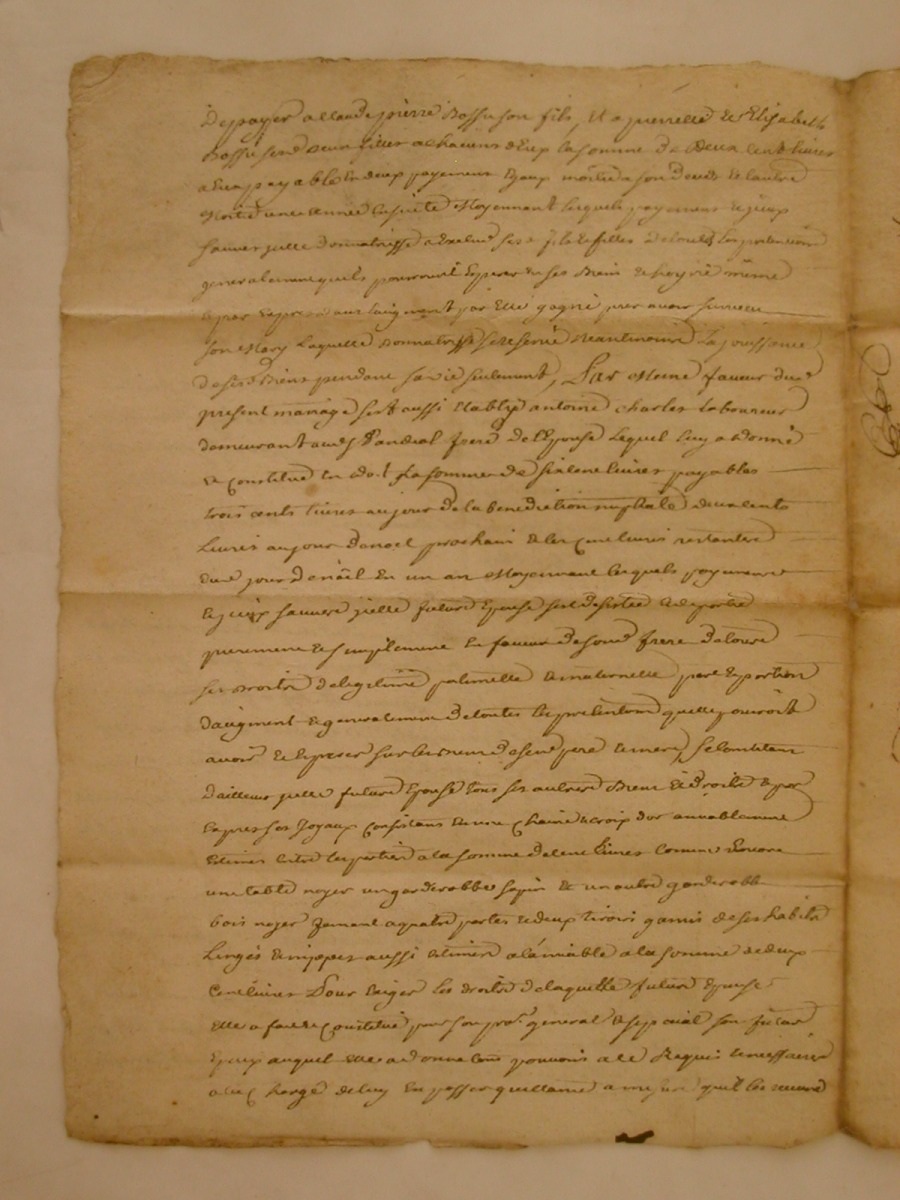 De payer a Claude pierre Bossu son fils, Et a pierrette et Elisabeth
Bossu ses deux filles a chacuns d'Eux la somme De Deux cent livres
a Eux payable En deux payements Egaux moitié a son deces Et l'autre
Moitié une année Ensuite Moyennant lesquels payements
sauver jcelle donnatrisse a Exclud ses fils Et filles de toutes les pretentions
generalement quils pourroient Esperer En ses Biens Et hoyrie même
Et par Expres aux augment par Elle gagné pour avoir survecu
son Mary Laquelle donnatrisse se reserve Neantmoins La jouissance
de ses Biens pendant sa vie seulement, Par Meme faveur du
present mariage sest aussi Etably antoine charles Laboureur
demeurant aud frere de l'Epouse Lequel luy a donné
et constitué En dot La somme de six cent livres payables
trois cents livres au jour de la benediction nuptiale deux cents
Livres au jour de noel prochain Et les cent livres restantes
dud jour de nöel En un an Moyennant lesquels payements
sauvers jcelle future Epouse sest desistée Et departie
purement Et simplement En faveur de sond frere de tous
ses droits de legitime paternelle Et maternelle part Et portion
daugment Et generalement de toutes les pretentions quelle pouroit
avoir Et Esperer sur les biens de ses pere Et mere, se Constituant
d'ailleurs jcelle future Epouse tous ses autres Biens Et droits Et par
Expres ses Joyaux Consistants En une Chaine Et croix d'or amiablement
Estimés Entre les parties a la somme de cent Livres Comme Encore
une table noyer un garderobbe sapin Et un autre garderobbe
bois noyer fermant a quatre portes Et deux tiroirs garnis de ses habits
Linges Et nippes aussi Estimés a l'amiable a la somme de deux
Cent livres Pour Exiger les droits de laquelle future Epouse
Elle a fait Et Constitué pour son procr general Et special son futur
Epoux auquel Elle a donné tout pouvoir a ce Requis Et necessaire
a la Charge de luy En passer quittance a mesure quil les recevra